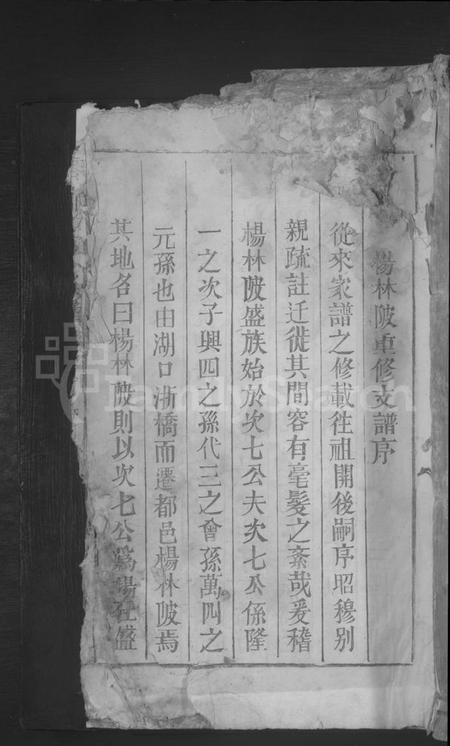 楊林陂重修支譜序
從來家譜之修載徃祖開後嗣序昭穆别
親疏註迁徙其間容有毫髮之紊哉爰稽
楊林陂盛族始於次七公夫次七公係隆
一之次子興四之孫代三之會孫萬四之
元孫也由湖口浙橋而遷都邑楊林陂焉
其地名曰楊林陂則以次七公爲楊林盛
FamilySearch